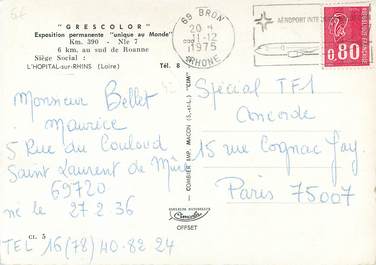 " GRESCOLOR "
Exposition permanente "unique au Monde"
Km. 390 - Nle 7
6 km. au sud de Roanne
Siège Social :
L'HOPITAL-sur-RHINS (Loire) Tél. 8
69 BRON
20 H
11-12
1975
RHONE
AÉROPORT INTE
0,80
Monsieur Bellet
Maurice
5 Rue du Couloud
Saint Laurent de Mûre
69720
ne le 27 2 36
TEL 16 (78) 40-82 24
Spécial TF1
Concorde
15 rue Cognac Jay
Paris 75007
COMBIER IMP. MACON (S.-et-L.) "CIM"
Cimcolor
OFFSET
ct. 5